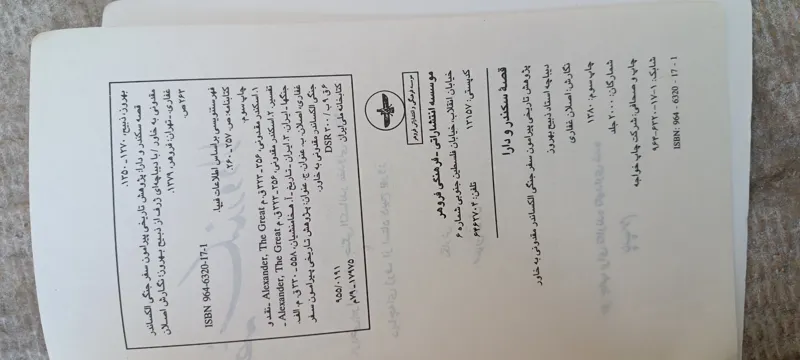 بهروز، ذبیح، ۱۲۷۰ـ۱۳۵۰.
قصه سکندر و دارا: پژوهش تاریخی پیرامون سفر جنگی الکساندر
مقدونی به خاور / با دیباچه‌ای ژرف از ذبیح بهروز؛ نگارش اصلان
غفاری.ـ تهران: فروهر، ۱۳۷۹.
۲۶۲ ص.
ISBN 964-6320-17-1
فهرستنویسی براساس اطلاعات فیپا.
کتابنامه: ص. ۲۵۷ـ۲۶۰.
چاپ سوم.
۱. اسکندر مقدونی، ۳۵۶ـ۳۲۳ ق.م. Alexander, The Great ـ نقد و
تفسیر. ۲. اسکندر مقدونی، ۳۵۶ـ۳۲۳ ق.م. Alexander, The Great ـ
جنگها ـ ایران. ۳. ایران ـ تاریخ ـ هخامنشیان، ۵۵۸ـ۳۳۰ ق.م. الف.
غفاری، اصلان. ب. عنوان. ج. عنوان: پژوهش تاریخی پیرامون سفر
جنگی الکساندر مقدونی به خاور.
۶ق۹ب/ DSR ۲۰۰
۹۵۵/۰۱۹۱
کتابخانه ملی ایران
۱۷۹۷۵ـ۷۹م
موسسه انتشاراتی ـ فرهنگی فروهر
خیابان انقلاب، خیابان فلسطین جنوبی شماره ۶
کدپستی: ۱۳۱۵۷
تلفن: ۶۴۶۲۷۰۴
قصهٔ سکندر و دارا
پژوهش تاریخی پیرامون سفر جنگی الکساندر مقدونی به خاور
دیباچه استاد ذبیح بهروز
نگارش: اصلان غفاری
چاپ سوم: ۱۳۸۰
شمارگان: ۲۰۰۰ جلد
چاپ و صحافی: شرکت چاپ خواجه
شابک: ۱-۱۷-۶۳۲۰-۹۶۴
ISBN: 964 - 6320 - 17 - 1